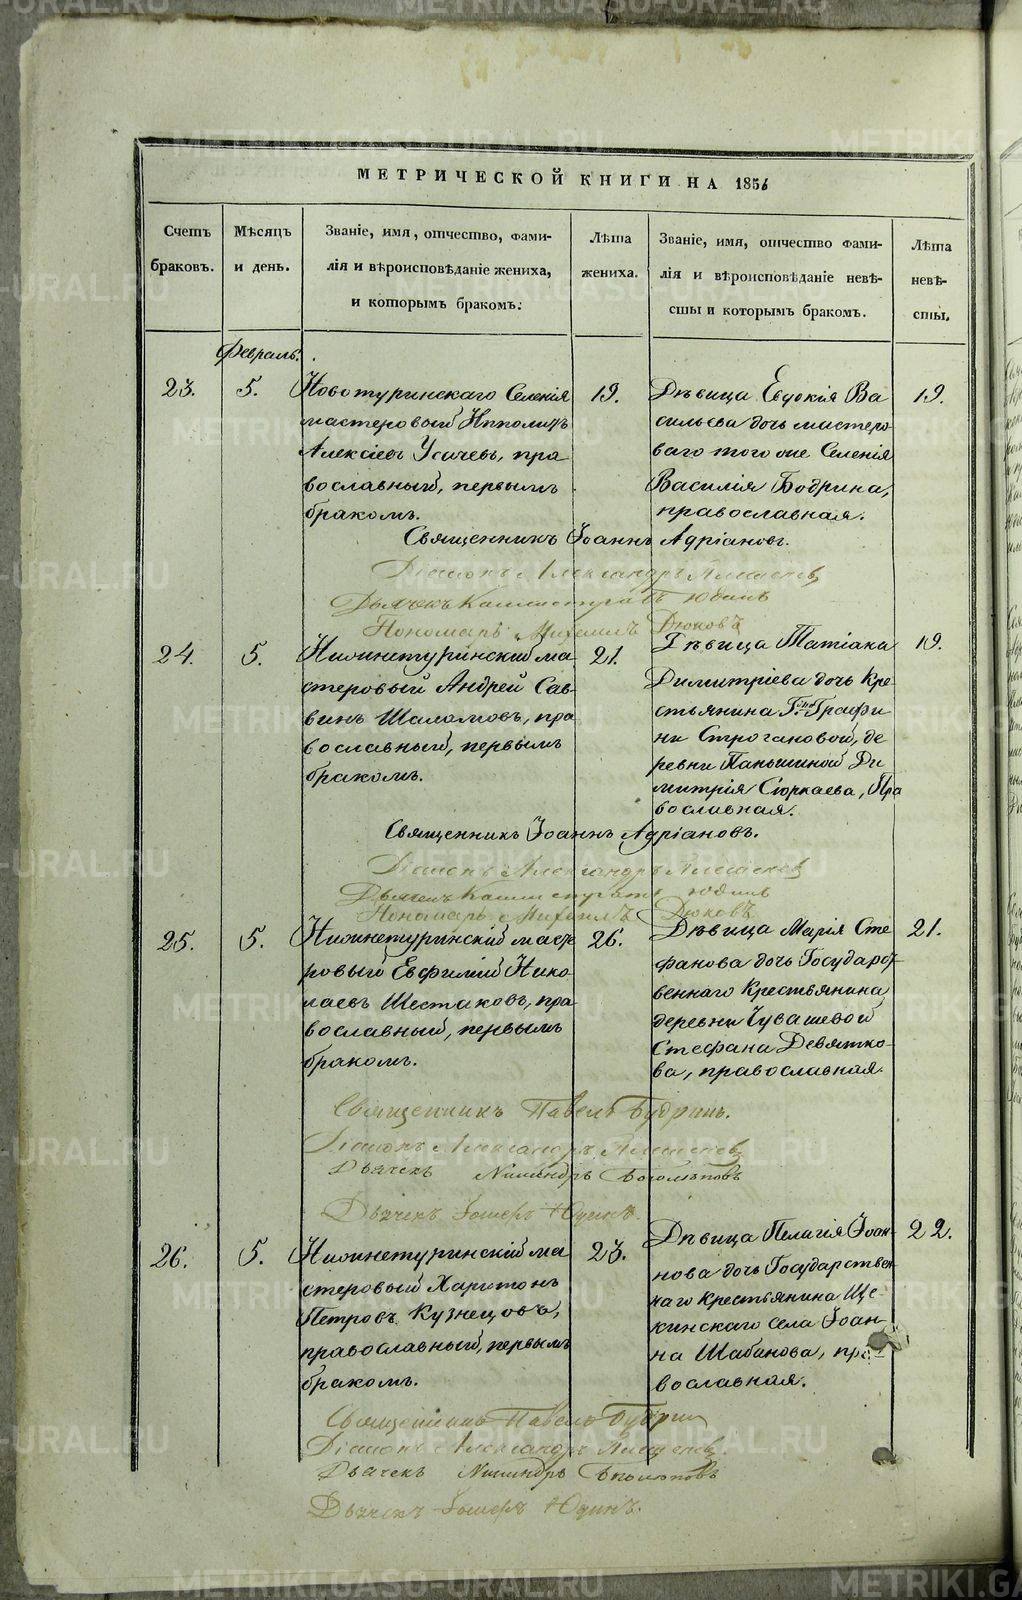 МЕТРИЧЕСКОЙ КНИГИ НА 1856
Счетъ браковъ.
Мѣсяцъ и день.
Званіе, имя, отчество, фами-
лія и вѣроисповѣданіе жениха,
и которымъ бракомъ:
Лѣта жениха.
Званіе, имя, отчество фами-
лія и вѣроисповѣданіе невѣ-
сты и которымъ бракомъ.
Лѣта невѣ-
сты.
Февраль.
23. 5.
Новотуринскаго Селенія
мастеровый Ипполитъ
Алексіевъ Усачевъ, пра
вославный, первымъ
бракомъ.
19.
Дѣвица Евдокія Ва
сильева дочь мастеро
ваго того же Селенія
Василія Бодрина,
православная.
19.
Священникъ Іоаннъ Адріановъ.
Діаконъ Александръ
Дьячекъ Каллистратъ Юдинъ
Пономарь Михаилъ Дюковъ
24. 5.
Нижнетуринскій ма
стеровый Андрей Сав
винъ Шаламовъ, пра
вославный, первымъ
бракомъ.
21.
Дѣвица Татіана
Димитріева дочь Кре
стьянина Гжи Графи
ни Строгановой, де
ревни Паньшиной Ди
митрія Сюркаева, Пра
вославная.
19.
Священникъ Іоаннъ Адріановъ.
Діаконъ Александръ
Дьячекъ Каллистратъ Юдинъ
Пономарь Михаилъ Дюковъ
25. 5.
Нижнетуринскій масте
ровый Евфимій Нико
лаевъ Шестаковъ, пра
вославный, первымъ
бракомъ.
26.
Дѣвица Марія Сте
фанова дочь Государст
веннаго Крестьянина
деревни Чувашевой
Стефана Девятко-
ва, православная.
21.
Священникъ Павелъ Будринъ.
Діаконъ Александръ
Дьячекъ Никандръ Боголѣповъ
Дьячекъ Юдинъ.
26. 5.
Нижнетуринскій ма
стеровый Харитонъ
Петровъ Кузнецовъ,
православный, первымъ
бракомъ.
23.
Дѣвица Пелагія Іоан-
нова дочь Государствен
наго крестьянина Ще-
кинскаго села Іоан-
на Шабанова, пра-
вославная.
22.
Священникъ Павелъ Будрин
Діаконъ Александръ
Дьячекъ Никандръ Боголѣповъ
Дьячекъ Юдинъ.
METRIKI.GASO-URAL.RU